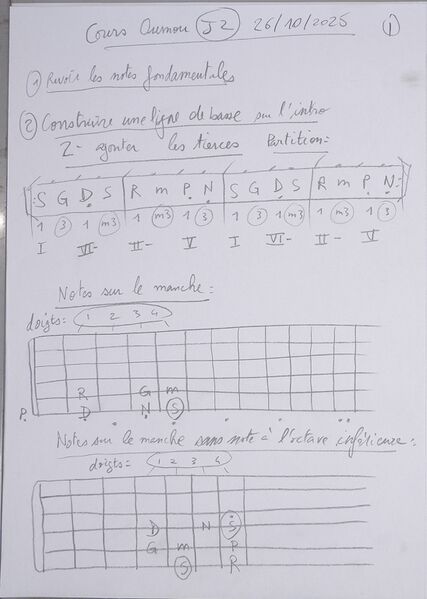 Cours Oumou J2 26/10/2025 1
1) Revoir les notes fondamentales
2) Construire une ligne de basse sur l'intro
2- ajouter les tierces Partition:
S G Ḍ S R m P̣ Ṇ S G Ḍ S R m P̣ Ṇ
1 3 1 m3 1 m3 1 3 1 3 1 m3 1 m3 1 3
I VI- II- V I VI- II- V
Notes sur le manche:
doigts: 1 2 3 4
R G m
P̣ Ḍ Ṇ S
Notes sur le manche sans note à l'octave inférieure:
doigts= 1 2 3 4
D N Ṡ
G m P
S R